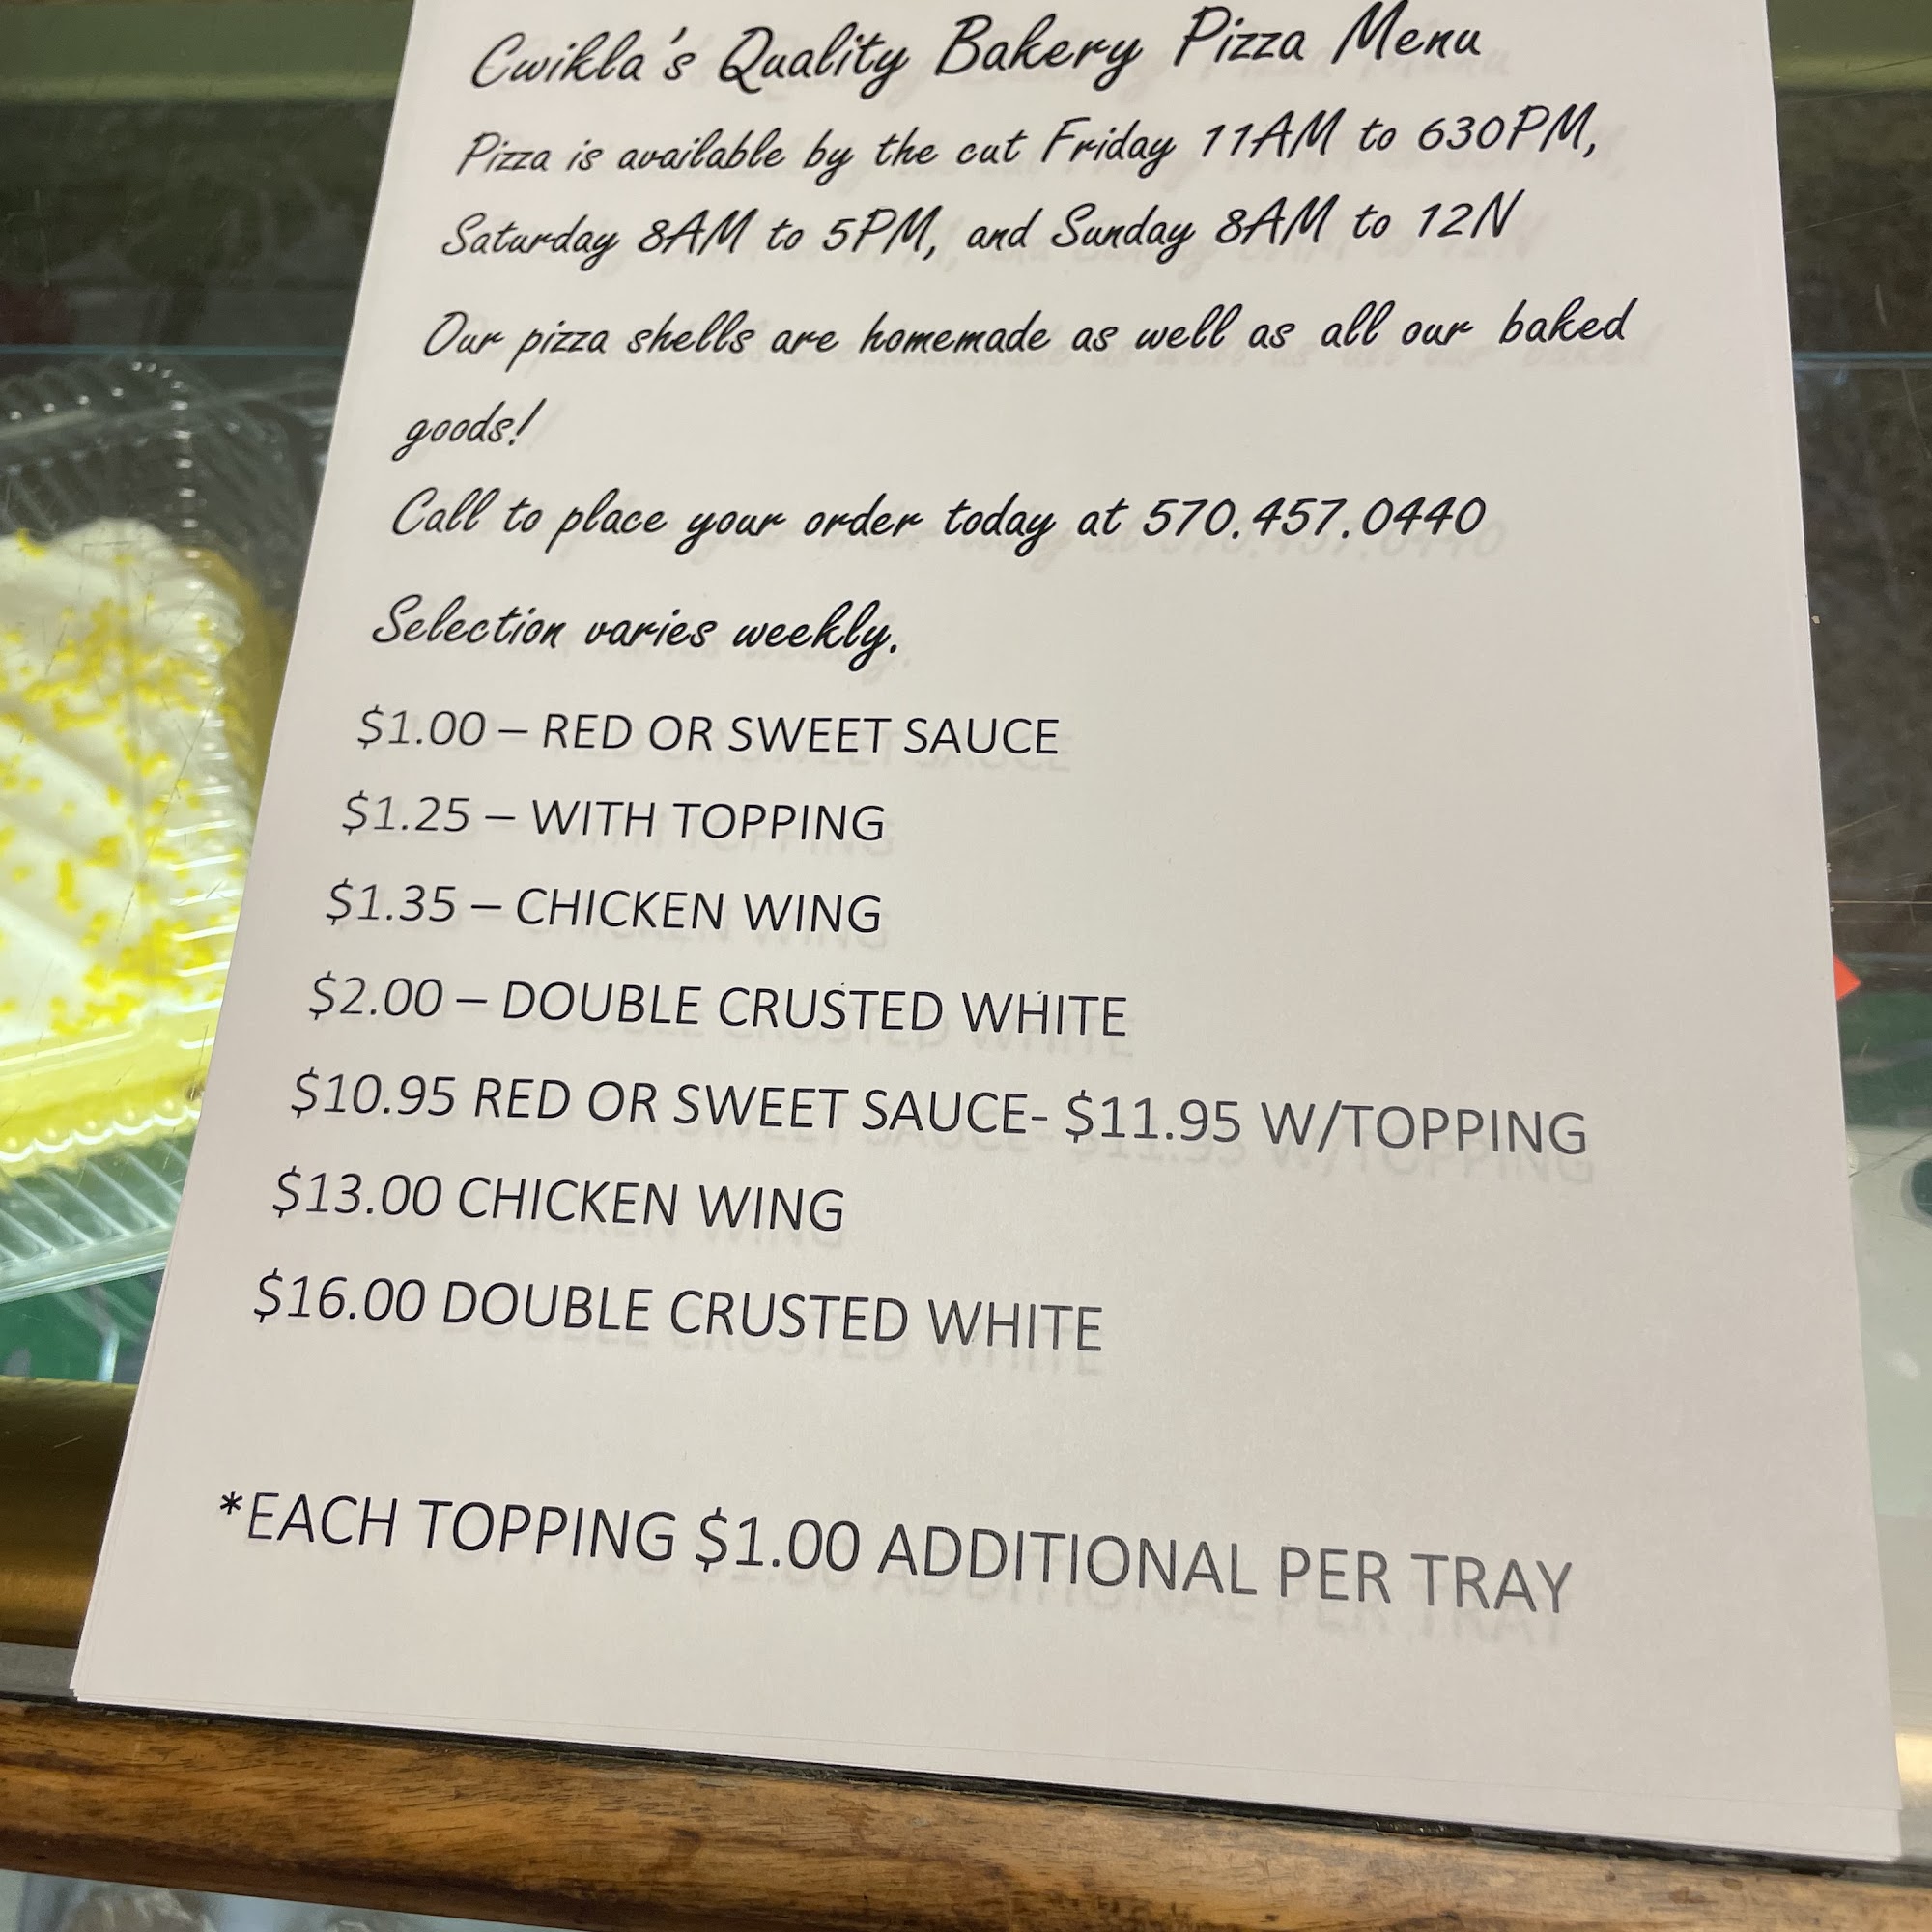 Cwikla's Quality Bakery Pizza Menu
Pizza is available by the cut Friday 11AM to 630PM,
Saturday 8AM to 5PM, and Sunday 8AM to 12N
Our pizza shells are homemade as well as all our baked
goods!
Call to place your order today at 570.457.0440
Selection varies weekly.
$1.00 – RED OR SWEET SAUCE
$1.25 – WITH TOPPING
$1.35 – CHICKEN WING
$2.00 – DOUBLE CRUSTED WHITE
$10.95 RED OR SWEET SAUCE- $11.95 W/TOPPING
$13.00 CHICKEN WING
$16.00 DOUBLE CRUSTED WHITE
*EACH TOPPING $1.00 ADDITIONAL PER TRAY